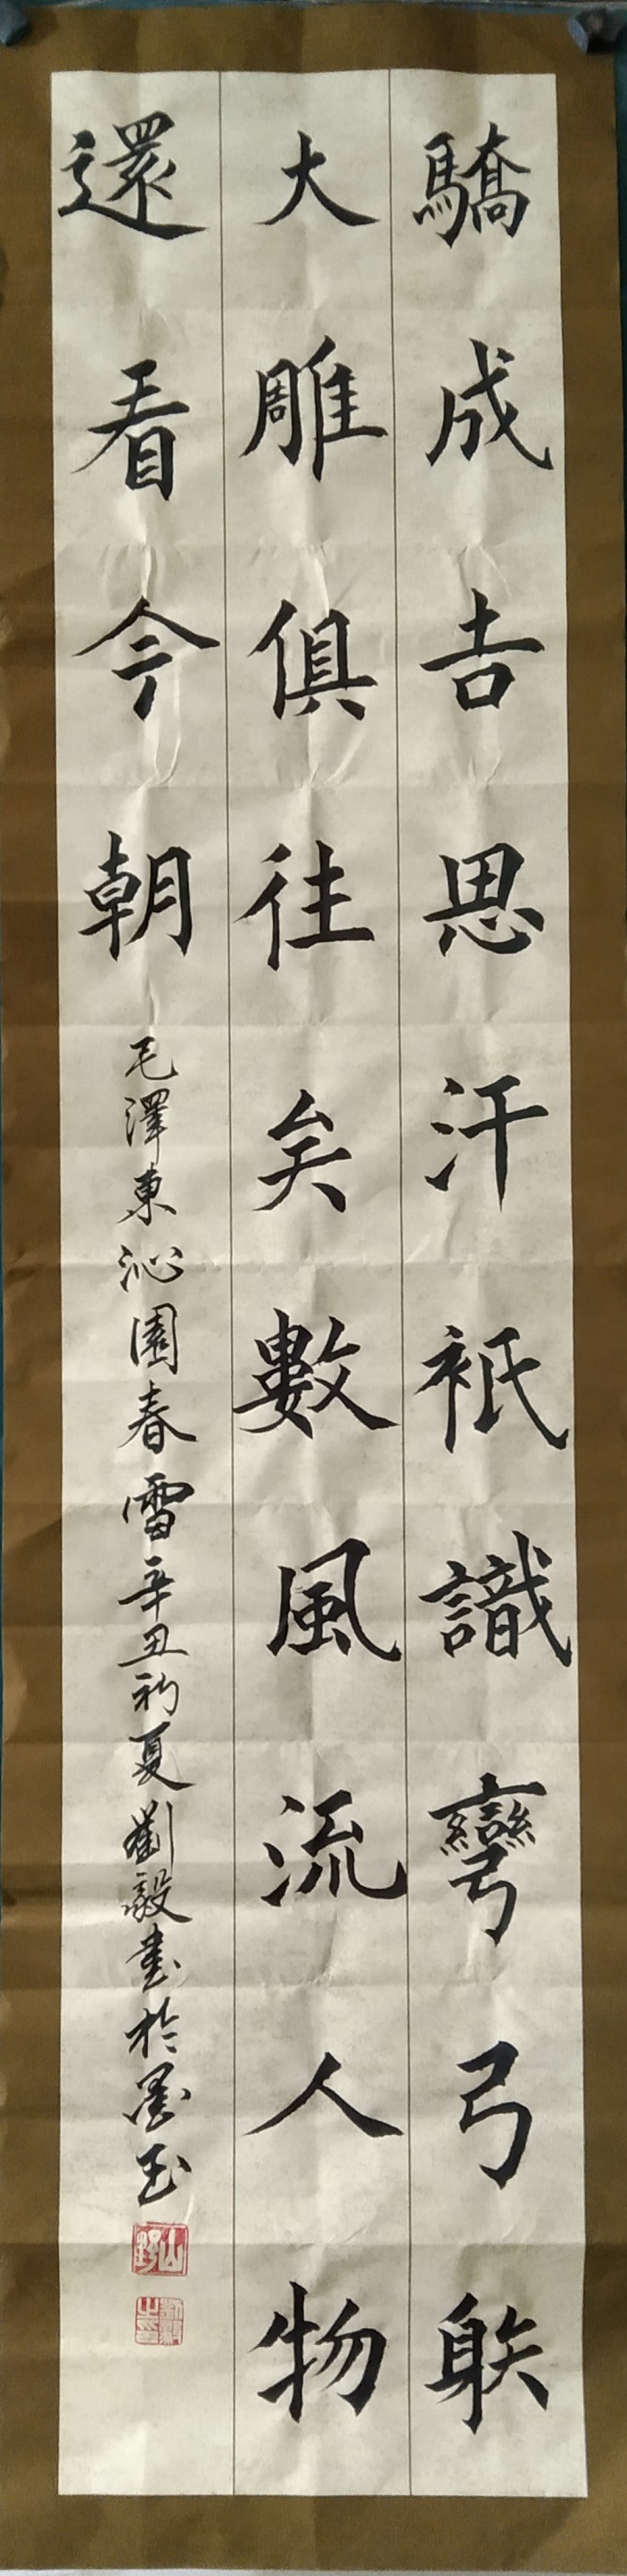 驕成吉思汗祇識彎弓䠶
大雕俱往矣數風流人物
還看今朝
毛澤東沁園春雪辛丑初夏劉毅書於墨玉
山野
劉毅之印